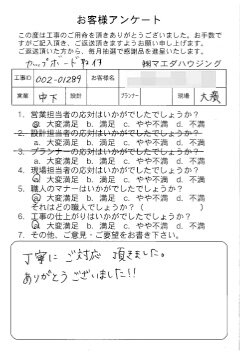 お客様アンケート
この度は工事のご用命を頂きありがとうございました。お手数で
すがご記入頂き、ご返送頂きますようお願い申し上げます。
ご返送いただいた方から、毎月抽選で感謝品を進呈いたします。
カップボード取付 ㈱マエダハウジング
工事ID 002-01289 お客様名
営業 中下 設計 プランナー 現場 大廣
1. 営業担当者の応対はいかがでしたでしょうか?
a. 大変満足 b. 満足 c. やや不満 d. 不満
2. 設計担当者の応対はいかがでしたでしょうか?
a. 大変満足 b. 満足 c. やや不満 d. 不満
3. プランナーの応対はいかがでしたでしょうか?
a. 大変満足 b. 満足 c. やや不満 d. 不満
4. 現場担当者の応対はいかがでしたでしょうか?
a. 大変満足 b. 満足 c. やや不満 d. 不満
5. 職人のマナーはいかがでしたでしょうか?
a. 大変満足 b. 満足 c. やや不満 d. 不満
それはどの職人でしょうか?( )
6. 工事の仕上がりはいかがでしたでしょうか?
a. 大変満足 b. 満足 c. やや不満 d. 不満
7. その他、ご意見・ご要望をお書き下さい。
丁寧にご対応頂きました。
ありがとうございました!!